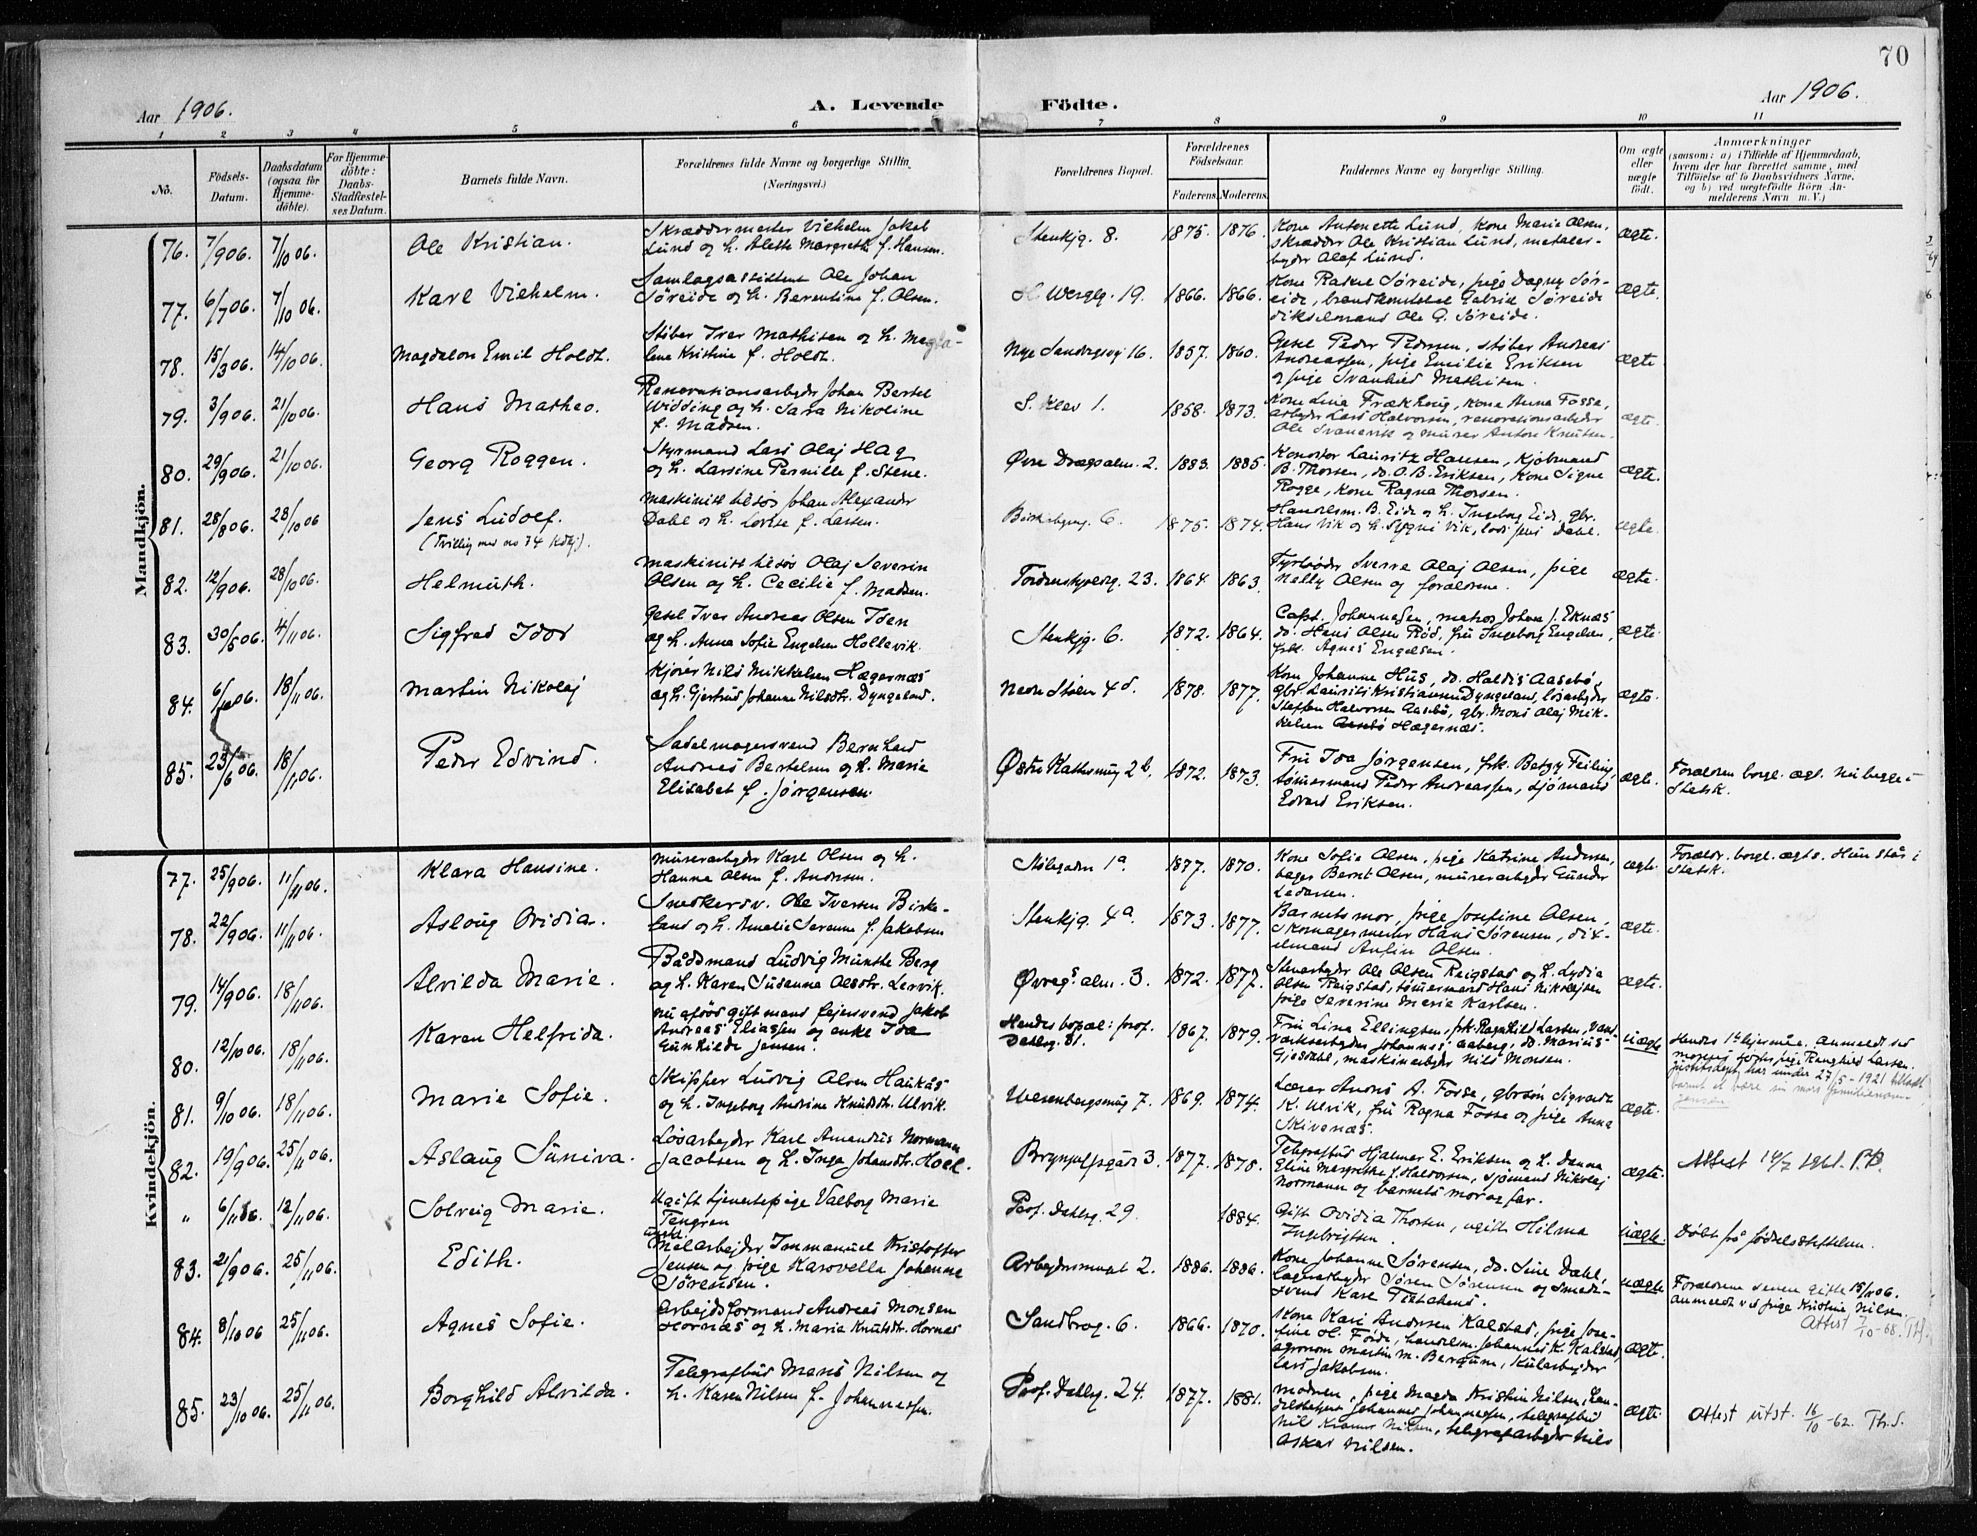 70
Aar 1906.
A. Levende Födte.
Aar 1906.
1 2 3 4 5 6 7 8 9 10 11
No.
Födsels-Datum.
Daabsdatum (ogsaa for Hjemme-döbte).
For Hjemme-döbte: Daabs-Stadfæstel-ses Datum.
Barnets fulde Navn.
Forældrenes fulde Navne og borgerlige Stilling (Næringsvei.)
Forældrenes Bopæl.
Forældrenes Födselsaar.
Faderens. Moderens.
Faddernes Navne og borgerlige Stilling.
Om ægte eller uægte födt.
Anmærkninger
(saasom: a) i Tilfælde af Hjemmedaab, hvem der har forrettet samme, med Tilföielse af to Daabsvidners Navne, og b) ved uægtefödte Börn An-melderens Navn m. V.)
Mandkjön.
76. 7/906. 7/10 06. Ole Kristian.
Skræddermester Vilhelm Jakob
Lund og h. Alette Margreth f. Hansen.
Stenkjg. 8. 1875. 1876.
Kone Antonette Lund, kone Marie Olsen,
skrædder Ole Kristian Lund, metalar-
bejder Olaf Lund.
ægte.
77. 6/7 06. 7/10 06. Karl Vilhelm.
Samlagsassistent Ole Johan
Søreide og h. Berentine f. Olsen.
H. Wergelg. 19. 1866. 1866.
Kone Rakel Søreide, pige Dagny Sør-
eide, brandkonstabel Gabriel Søreide
dikselmand Ole G. Søreide.
ægte.
78. 15/3 06. 14/10 06. Magdalon Emil Holdt.
Støber Iver Mathisen og h. Magda-
lene Kristine f. Holdt.
Nye Sandvigsvej 16. 1857. 1860.
Gesel Peder Pedersen, støber Andreas
Andreassen, pige Emilie Eriksen
og pige Svanhild Mathisen.
ægte
79. 3/906. 21/10 06. Hans Matheo.
Renovationsarbejder Johan Bertel
Widding og h. Sara Nikoline
f. Madsen.
S. Klev 1. 1858. 1873.
Kone Lina Frækhaug, kone Anna Fosse,
arbejder Lars Halvorsen, renovationsarbeider
Ole Svanevik og murer Anton Knutsen.
ægte.
80. 29/906. 21/10 06. Georg Roggen.
Styrmand Lars Olaj Hag
og h. Larsine Pernille f. Stene.
Øvre Dragsalm. 2. 1883. 1885.
Konditor Lauritz Hansen, Kjøbmand
B. Thorsen, do. O. B. Eriksen, kone Signe
Rogge, kone Ragna Thorsen.
ægte.
81. 28/8 06. 28/10 06 Jens Ludolf.
(Tvilling med no 74 Kdkj).
Maskinist tilsøs Johan Alexander
Dahl og h. Lovise f. Larsen.
6. 1875. 1874.
Handelsm. B. Eide og h. Ingeborg Eide, gbr.
Hans Vik og h. Vik, lods Jens Dahl.
ægte.
82. 12/906. 28/10 06. Helmuth.
Maskinist tilsøs Olaj Severin
Olsen og h. Cecilie f. Madsen.
Tordenskjoldsg. 23. 1864 1863.
Fyrbøder Sverre Olaj Olsen, pige
Nelly Olsen og forældrene.
ægte.
83. 30/5 06. 4/11 06. Sigfred Idar
Gesel Iver Andreas Olsen Iden
og h. Anna Sofie Engelsen Hollevik.
Stenkjg. 6. 1872. 1864.
Capt. Johannessen, matros Johan J. Eknæs
do. Hans Olsen Rød, fru Ingeborg Engelsen,
frk. Agnes Engelsen.
ægte.
84. 6/ 06. 18/11 06. Martin Nikolaj
Kjører Nils Mikkelsen Hægernæs
og h. Gjertrud Johanne Nilsdtr. Dyngeland.
Nedre Stølen 4d. 1878. 1877.
Kone Johanne Hus, do. Haldis Aasebø,
gbr. Laurits Kristiansen Dyngeland, løsarbejder
Steffen Halvorsen Aasebø, gbr. Mons Olaj Mik-
kelsen Hægernæs.
ægte.
85. 23/6 06. 18/11 06. Peder Edvind.
Sadelmagersvend Bernhard
Andreas Bertelsen og h. Marie
Elisabet f. Jørgensen.
Østre Kalhusmug 2b. 1872. 1873.
Fru Ida Jørgensen, frk. Betzy Feiling,
tømmermand Peder Andreassen, sjømand
Edvard Eriksen.
ægte. Forældren borgl. ægt. Nu begge i
Statsk.
Kvindekjön.
77. 25/906. 11/11 06. Klara Hansine.
Murerarbejder Karl Olsen og h.
Hanna Olsen f. Andersen.
Stølegaden 1a 1877. 1870.
Kone Sofie Olsen, pige Katrine Andersen,
bager Bernt Olsen, murerarbejder Gunder
Ledaasen.
ægte. Forældr. borgl. ægte. Hun står i
Statsk.
78. 22/906. 11/11 06. Aslaug Ovidia.
Snedkersv. Ole Iversen Birke-
land og h. Amalie Serenne f. Jakobsen
Stenkjg. 4a. 1873. 1877.
Barnets mor, pige Josefine Olsen,
skomagermester Hans Sørensen, dik-
selmand Anfin Olsen.
ægte.
79. 14/906. 18/11 06. Alvilda Marie.
Baadsmand Ludvig Munthe Berg
og h. Karen Susanna Olsdtr. Lervik.
Øvregs alm. 3. 1872. 1877.
Stenarbejder Ole Olsen Reigstad og h. Lydia
Olsen Reigstad, tømmermand Hans Nikolajsen
pige Severine Marie Karlsen.
ægte.
80. 12/10 06. 18/11 06. Karen Helfrida.
nu afdød gift mand fejersvend Jakob
Andreas Eliassen og enke Ida
Gunhilde Jensen.
Hendes bopæl: prof.
Dahlsg. 81. 1867. 1879.
Fru Lina Ellingsen, frk. Ragnhild Larsen, vand-
værksarbejder Johannes Aaberg, do. Marius
Gjesdahl, maskinarbejder Nils Monsen.
uægte Hendes 1ste lejermaal. Anmeldt ved
pige Ragnhild Larsen.
Justitsdept. har under 27/5-1921 tilladt
barnet at bære sin mors familienavn
Jensen
81. 9/10 06. 18/11 06. Marie Sofie.
Skipper Ludvig Olsen Haukås
og h. Ingeborg Andrine Knutsdtr. Ulvik.
Wesenbergsmug 7. 1869. 1874.
Lærer Andrs A. Fosse, gbrsøn Sigvard
K. Ulvik, fru Ragna Fosse og pige Anna
Skivenæs.
ægte.
82. 19/906. 25/11 06. Aslaug Suniva.
Løsarbejder Karl Amandus Normann
Jacobsen og h. Inga Johansdtr. Hoel.
Brynjulfsgår 3. 1877. 1878.
Telegrafbud Hjalmar E. Eriksen og h. Danna
Eline Margrethe f. Halvorsen, sjømand Nikolaj
Normann og barnets mor og far.
ægte. Attest 14/7 1961.
" 6/11 06. 12/11 06. Solveig Marie.
Ugift tjenestepige Valborg Marie
Tengren
Prof. Dahlsg. 29. 1884.
Gift Ovidia Thorsen, ugift Hilma
Ingebrigtsen.
uægte. Døbt på fødselsstiftelsen.
83. 2/906. 25/11 06. Edith.
Melarbejder Immanuel Kristoffer
Jensen og pige Karovelle Johanne
Sørensen.
Arbejdersmuget 2. 1886. 1886.
Kone Johanne Sørensen, do. Sine Dahl,
lagerarbejder Søren Sørensen og smede-
svend Karl
uægte Forældrene senere gifte 15/11 06.
anmeldt ved pige Kristine Nilsen.
Attest 7/10-68.
84. 8/10 06 25/11 06. Agnes Sofie.
Arbejdsformand Andreas Monsen
Hornæs og h. Maria Knutsdtr. Hornæs
Sandbrog. 6. 1866. 1870.
Kone Kari Andersen Kalstad, pige Jose-
fine H. Førde, handelsm. Johannes K. Kalstad,
agronom Martin M. Bergum, kularbejder
Lars Jakobsen.
ægte.
85. 23/10 06. 25/11 06. Borghild Alvilda.
Telegrafbud Mons Nilsen og
h. Karen Nilsen f. Johannessen.
Prof. Dahlsg. 24. 1877. 1881.
Modren, pige Magda Kristine Nilsen, han-
delsbetjent Johannes Johannessen, telegrafbud
Nils Nilsen, telegrafarbejder Nils
Oskar Nilsen.
ægte. Attest utst. 16/10-62. Th. S.